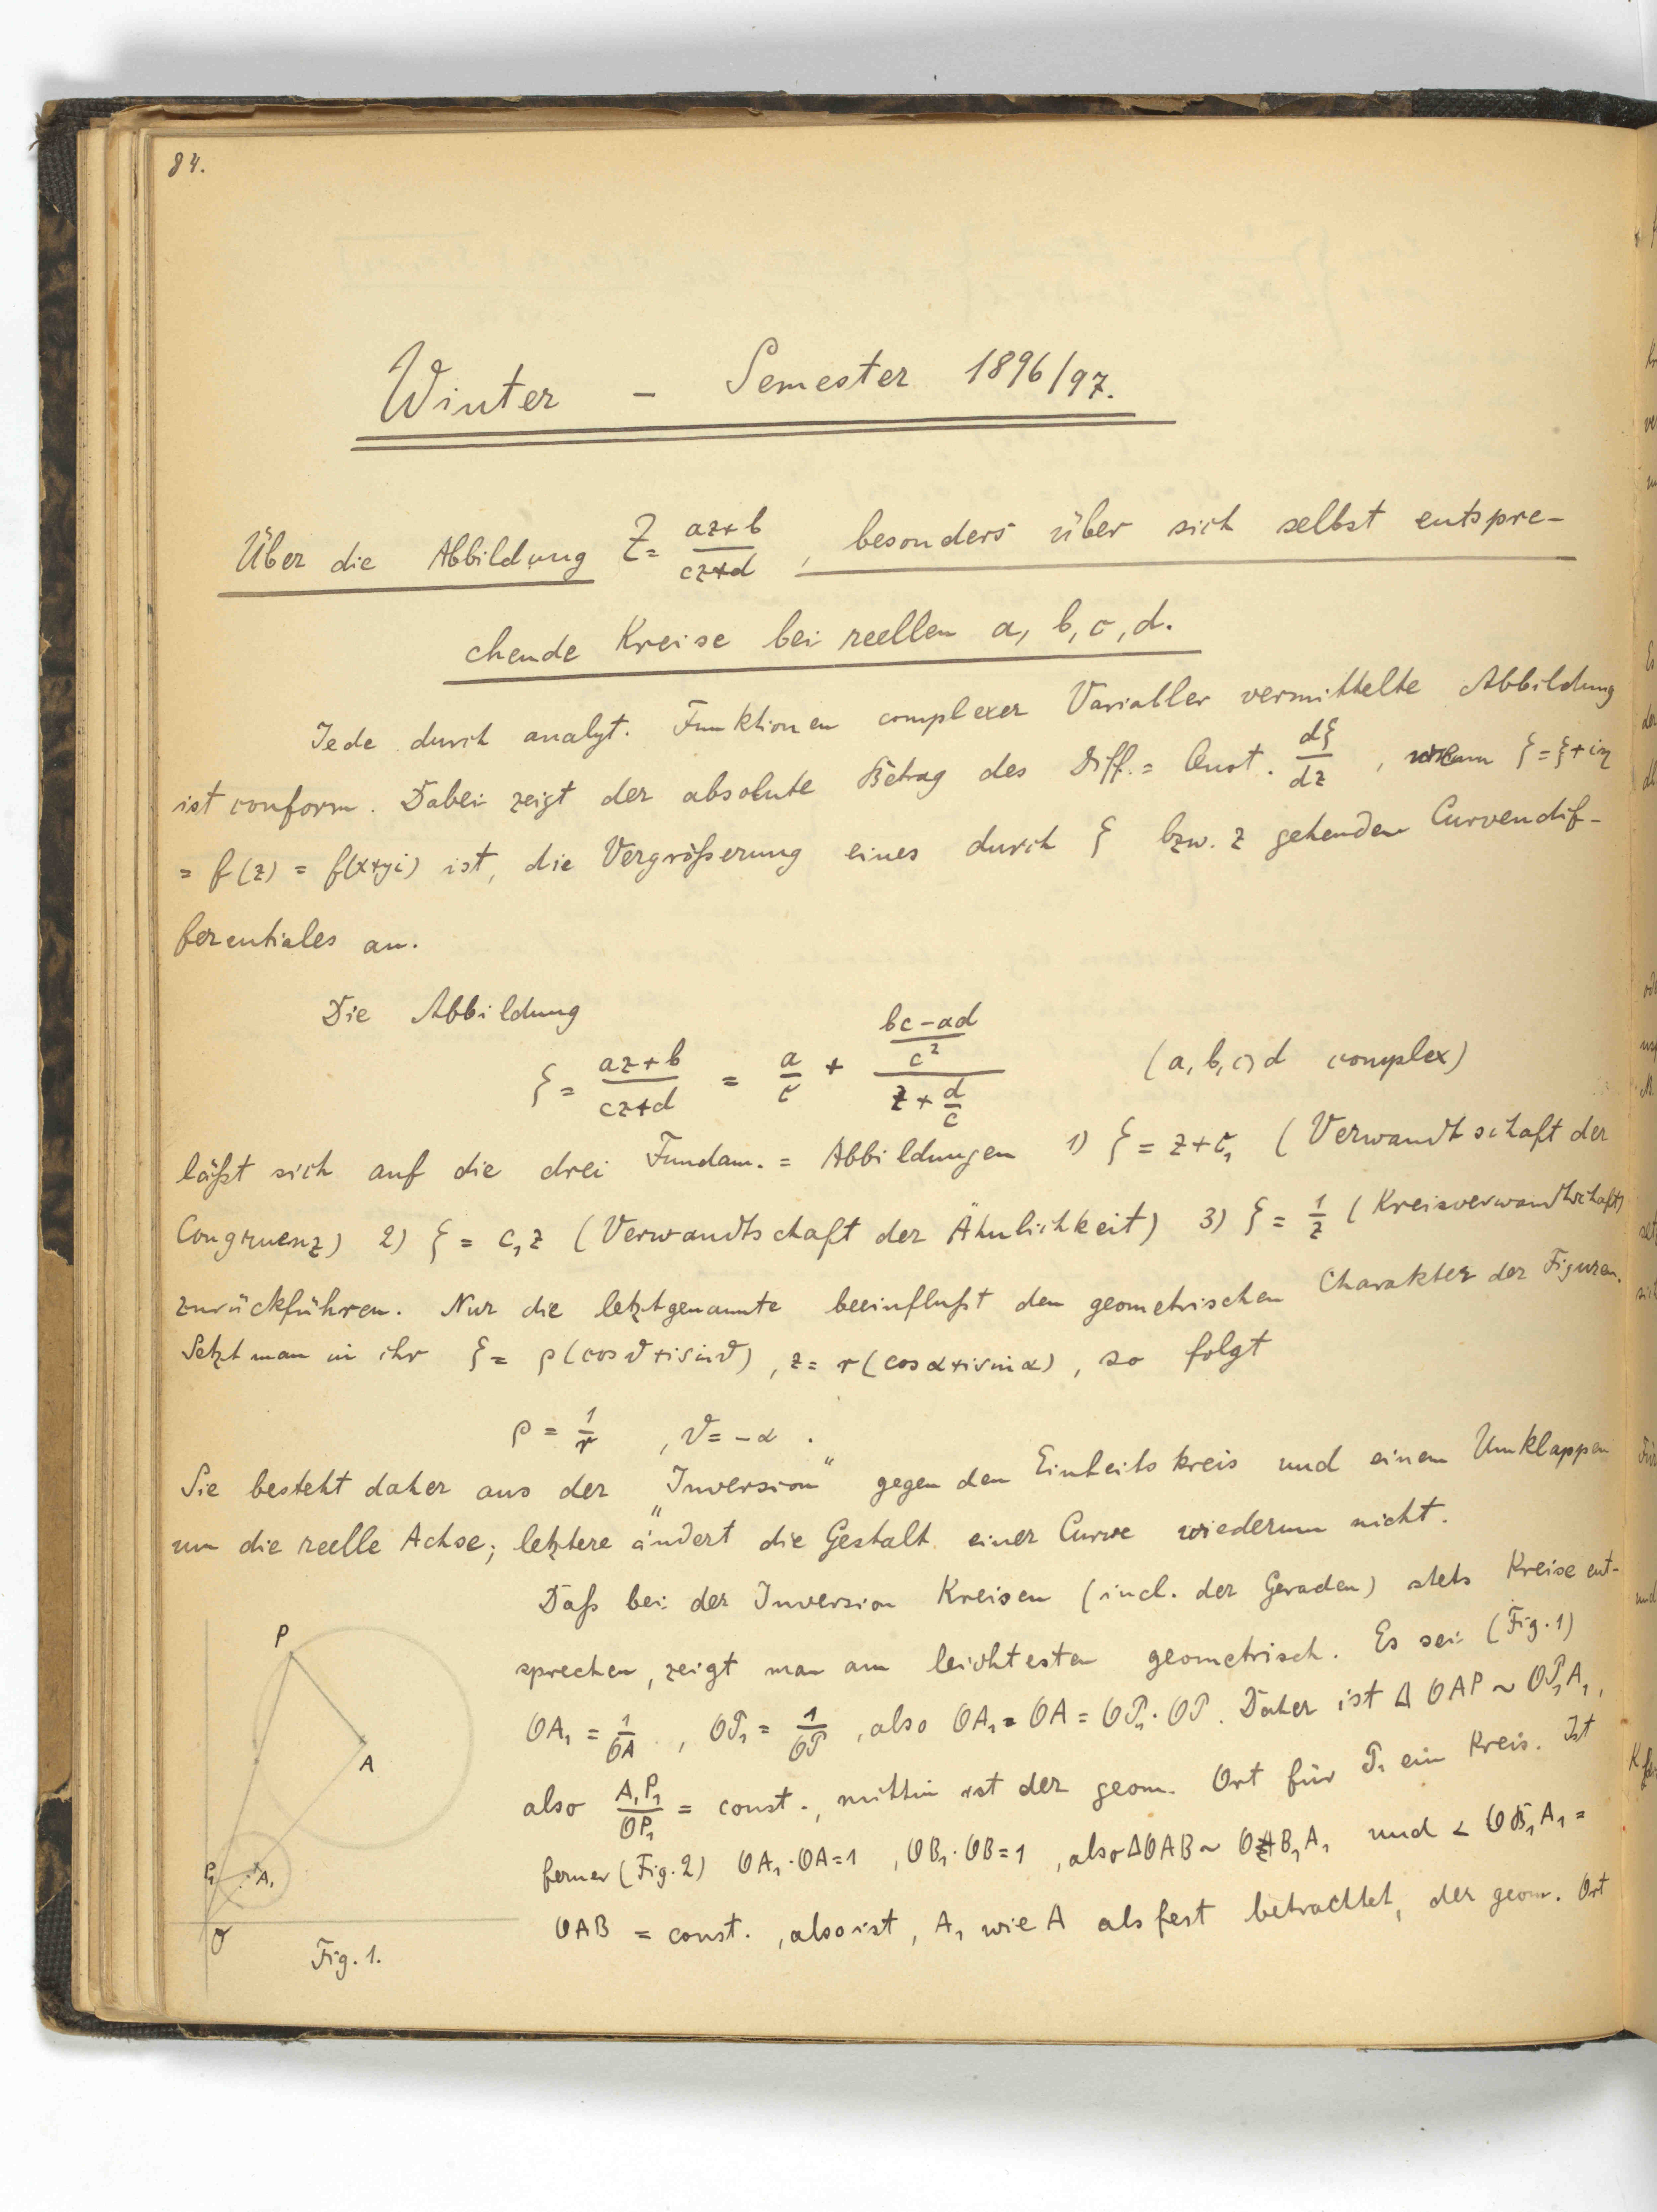 84.
Winter - Semester 1896/97.
Über die Abbildung Z = (az+b)/(cz+d), besonders über sich selbst entspre-
chende Kreise bei reellen a, b, c, d.
Jede durch analyt. Funktionen complexer Variabler vermittelte Abbildung
ist conform. Dabei zeigt der absolute Betrag des Diff.= Quot. dζ/dz, wenn ζ = ξ+iη
= f(z) = f(x+yi) ist, die Vergrößerung eines durch ζ bzw. z gehenden Curvendif-
ferentiales an.
Die Abbildung
ζ = (az+b)/(cz+d) = a/c + ((bc-ad)/c²)/(z + d/c) (a, b, c, d complex)
läßt sich auf die drei Fundam.= Abbildungen 1) ζ = z+c₁ (Verwandtschaft der
Congruenz) 2) ζ = c₁z (Verwandtschaft der Ähnlichkeit) 3) ζ = 1/z (Kreisverwandtschaft)
zurückführen. Nur die letztgenannte beeinflußt den geometrischen Charakter der Figuren.
Setzt man in ihr ζ = ρ(cosϑ+isinϑ), z = r(cosα+isinα), so folgt
ρ = 1/r, ϑ = -α.
Sie besteht daher aus der „Inversion“ gegen den Einheitskreis und einem Umklappen
um die reelle Achse; letztere ändert die Gestalt einer Curve wiederum nicht.
Daß bei der Inversion Kreisen (incl. der Geraden) stets Kreise ent-
sprechen, zeigt man am leichtesten geometrisch. Es sei (Fig. 1)
OA₁ = 1/OA, OP₁ = 1/OP, also OA₁ · OA = OP₁ · OP. Daher ist Δ OAP ~ OP₁A₁,
also A₁P₁/OP₁ = const., mithin ist der geom. Ort für P₁ ein Kreis. Ist
ferner (Fig. 2) OA₁·OA=1, OB₁·OB=1, also ΔOAB ~ OB₁A₁ und < OB₁A₁ =
OAB = const., also ist, A₁ wie A als fest betrachtet, der geom. Ort
P
A
P₁
A₁
O
Fig. 1.